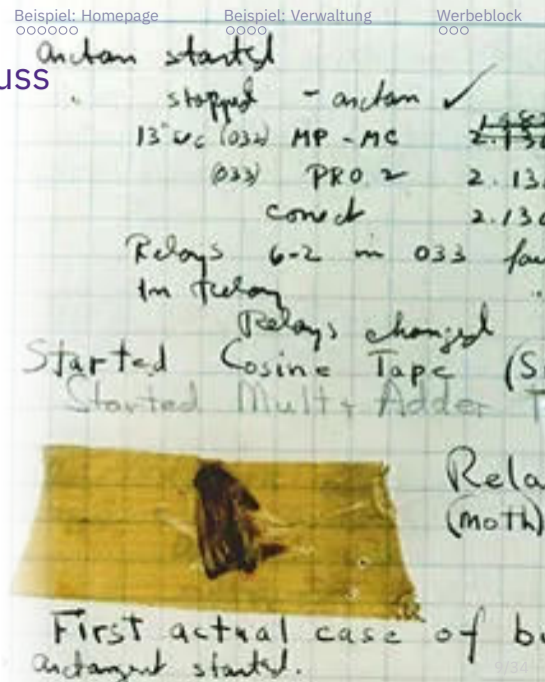 Beispiel: Homepage Beispiel: Verwaltung Werbeblock
uss
arctan started
" stopped - arctan ✓
13" uc (032) MP - MC 2.130
(033) PRO 2 2.13
conect 2.130
Relays 6-2 in 033
In Relay
Relays changed
Started Cosine Tape (S
Started Mult + Adder T
Rela
(moth)
First actual case of bu
arctangent started.
9/34